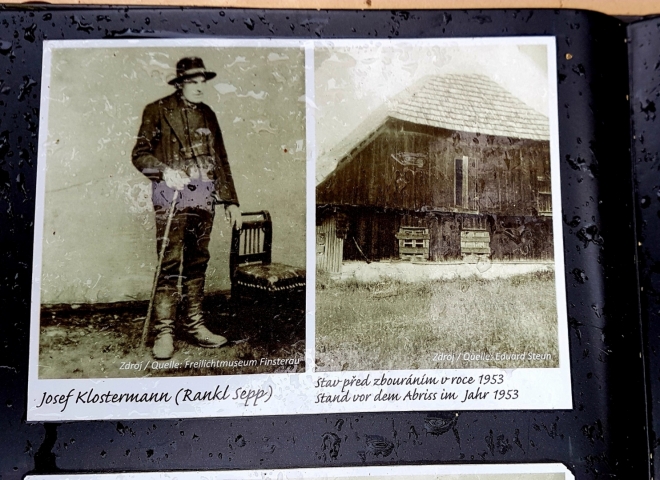 Zdroj / Quelle: Freilichtmuseum Finsterau
Josef Klostermann (Rankl Sepp)
Zdroj / Quelle: Eduard Steun
Stav před zbouráním v roce 1953
Stand vor dem Abriss im Jahr 1953